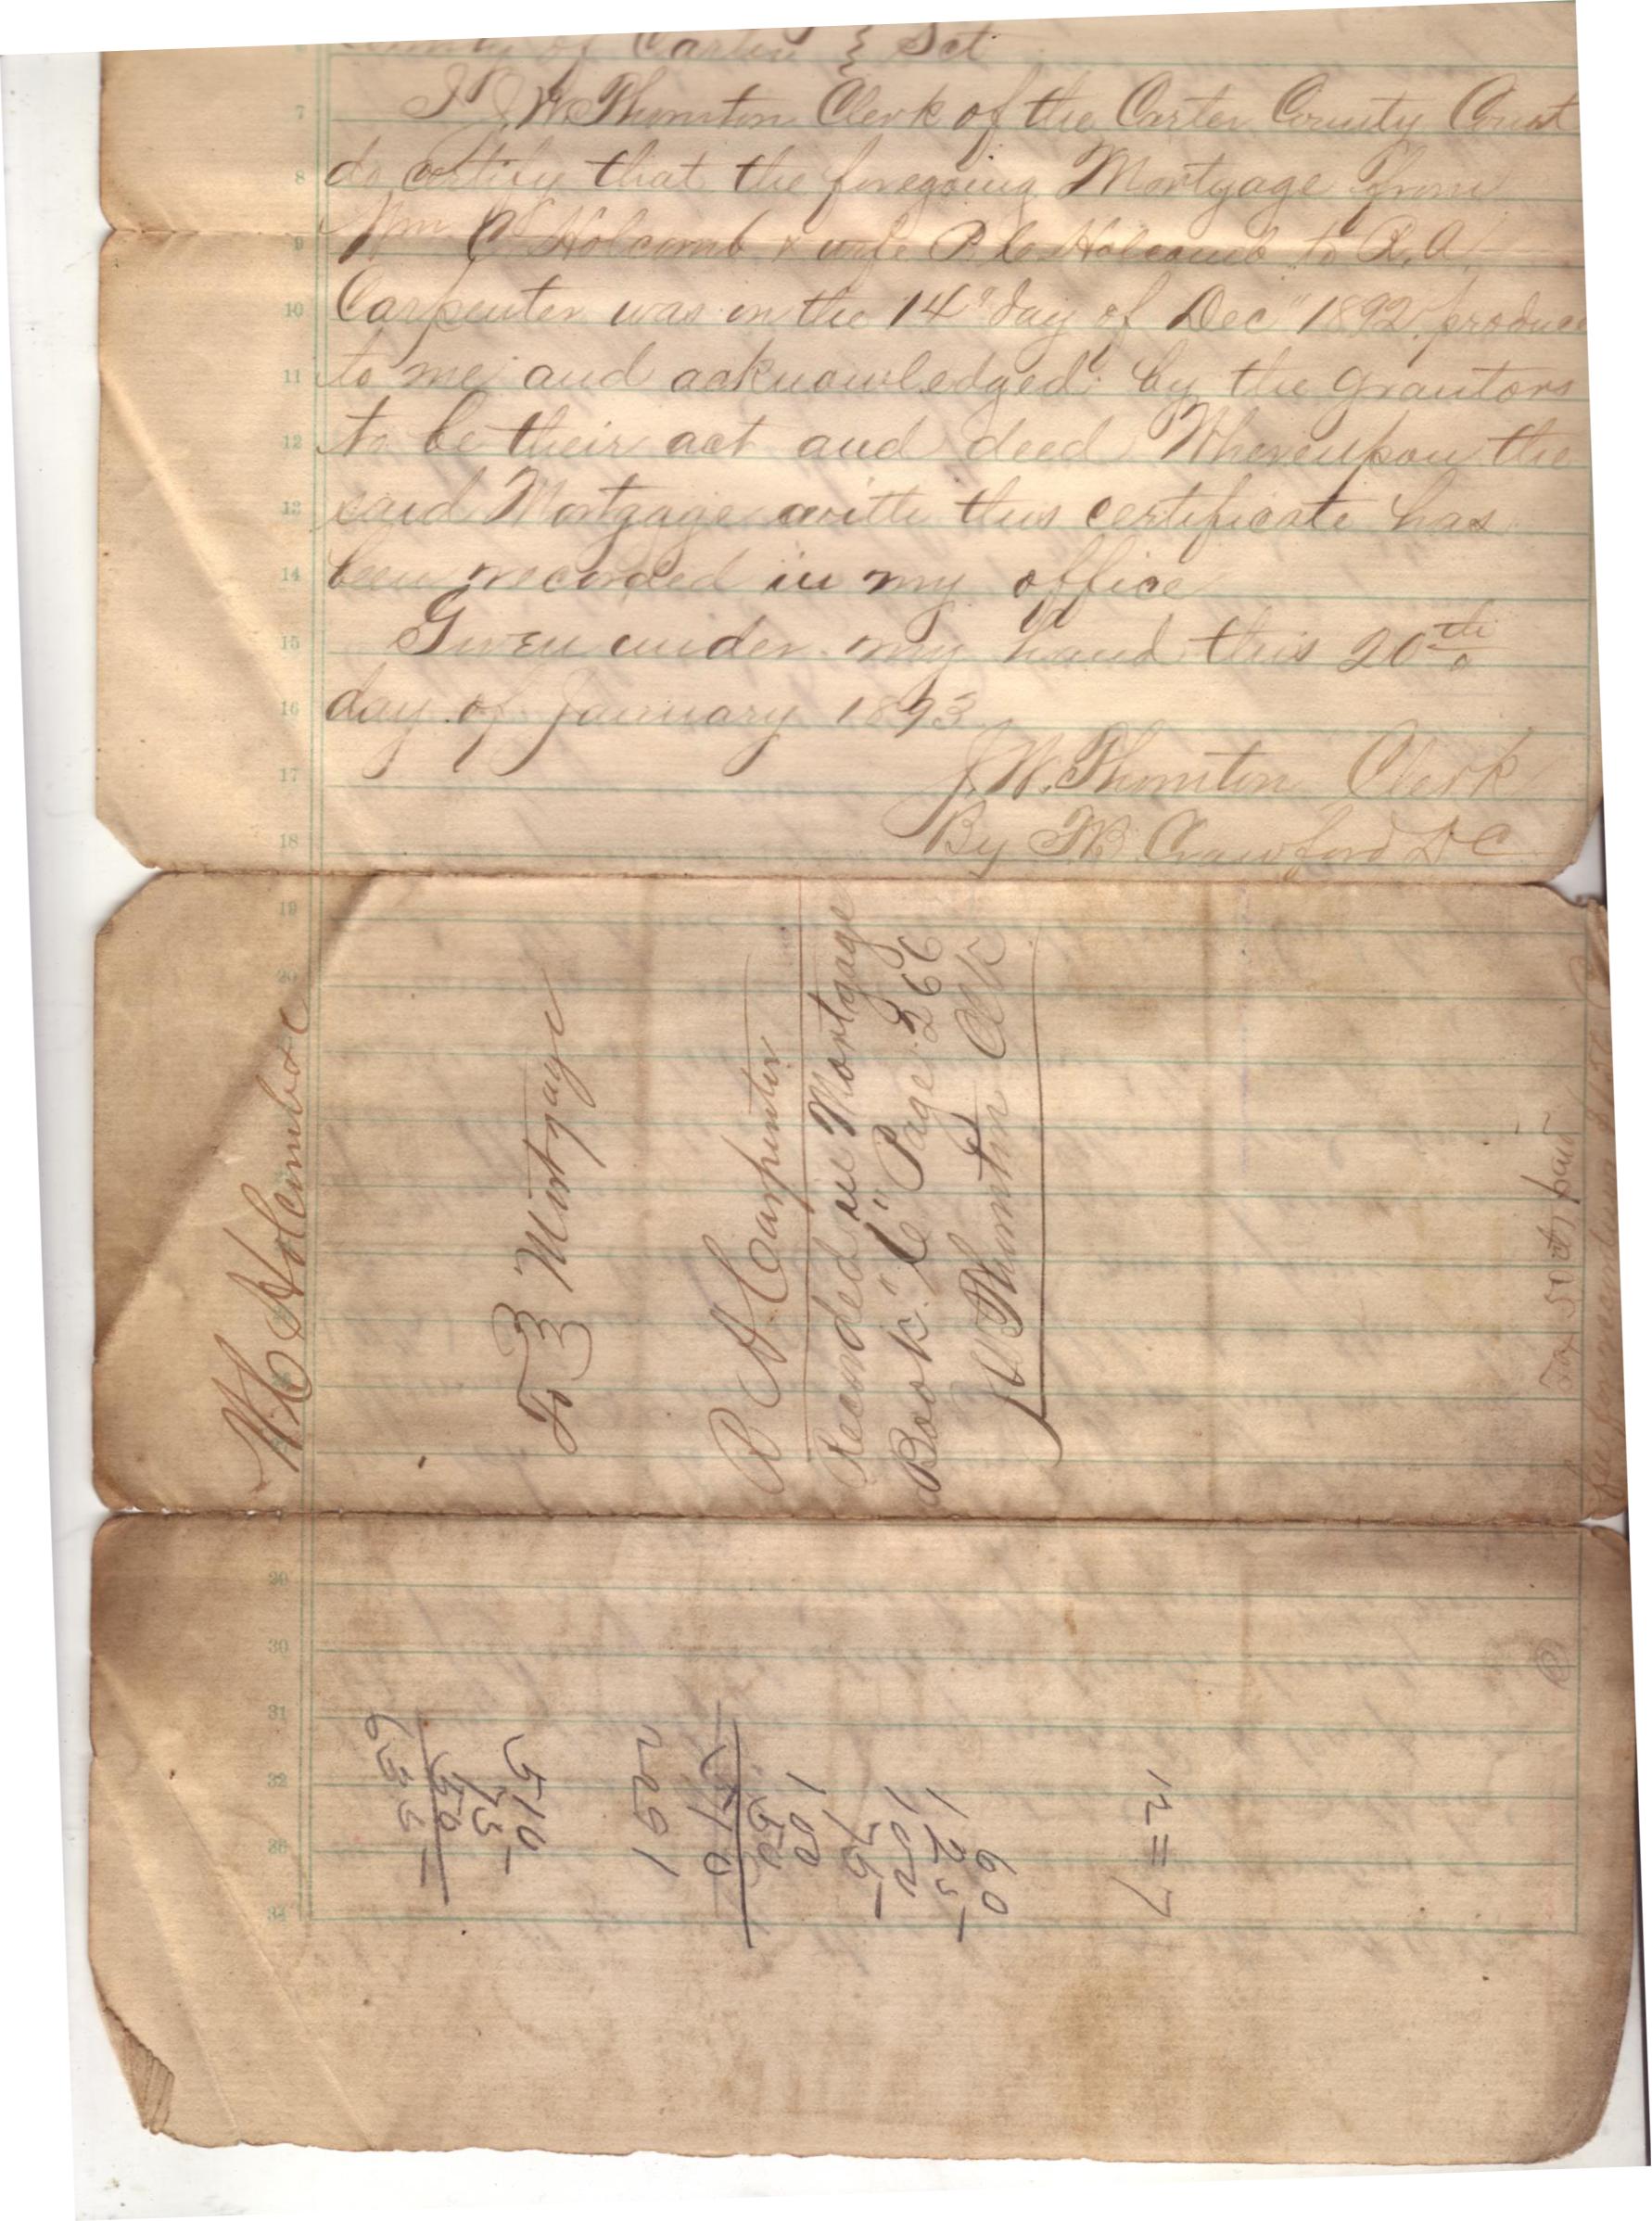 County of Carter } Sct
I J W Thornton Clerk of the Carter County Court
do certify that the foregoing Mortgage from
Wm C Holcomb & wife Holcomb to R. A.
Carpenter was on the 14" day of Dec" 1892 produce
to me and acknowledged by the grantors
to be their act and deed Whereupon the
said Mortgage with this certificate has
been recorded in my office
Given under my hand this 20th
day of January 1893
J. W. Thornton Clerk
By Crawford DC
W C Holcomb
To } Mortgage
R A Carpenter
Recorded in Mortgage
Book "C" Page 266
J W Thornton Clk
Tax 50 cts paid
12=7
60
125
102
175
100
50
510
2291
510
75
50
635
7
8
9
10
11
12
13
14
15
16
17
18
19
20
30
31
32